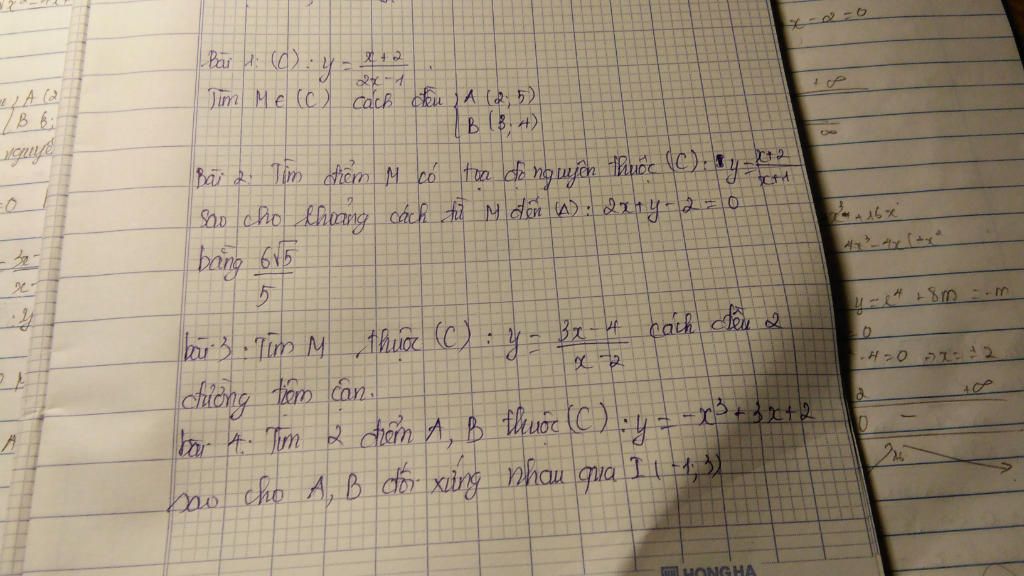 Bài 1: (C) : y = \frac{x+2}{2x-1}.
Tìm M ∈ (C) cách đều { A (2; 5)
B (3, 4)
Bài 2: Tìm điểm M có tọa độ nguyên thuộc (C) : y = \frac{x+2}{x+1}
sao cho khoảng cách từ M đến (Δ) : 2x+y-2 = 0
bằng \frac{6\sqrt{5}}{5}
bài 3 : Tìm M thuộc (C) : y = \frac{3x-4}{x-2} cách đều 2
đường tiệm cận.
bài 4: Tìm 2 điểm A, B thuộc (C) : y = -x³ + 3x + 2
sao cho A, B đối xứng nhau qua I (-1; 3)
HONG HA
x - 2 = 0
+∞
y = x⁴ + 8m = -m
-4=0 x = ±2
+∞
A (2
B